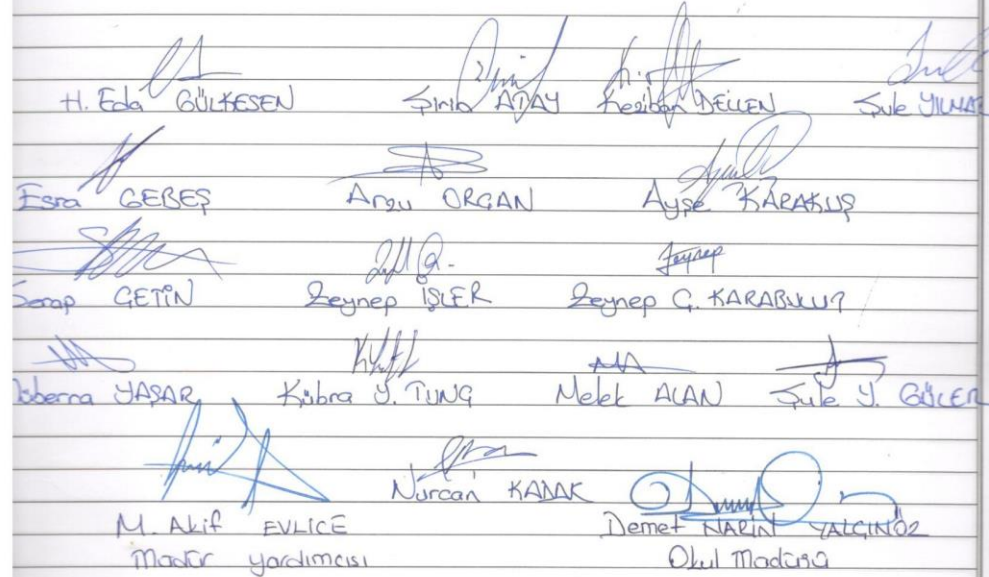 H. Eda GÜLKESEN Şirin ATAY Keziban DELLEN Şule YILMAZ
Esra GEBEŞ Arzu ORGAN Ayşe KARAKUŞ
Serap ÇETİN Zeynep İŞLER Zeynep Ç. KARABULUT
YAŞAR Kübra Y. TUNÇ Melek ALAN Şule Y. GÜLER
Nurcan KABAK
M. Akif EVLİCE Demet NARİN YALÇINÖZ
Müdür Yardımcısı Okul Müdürü